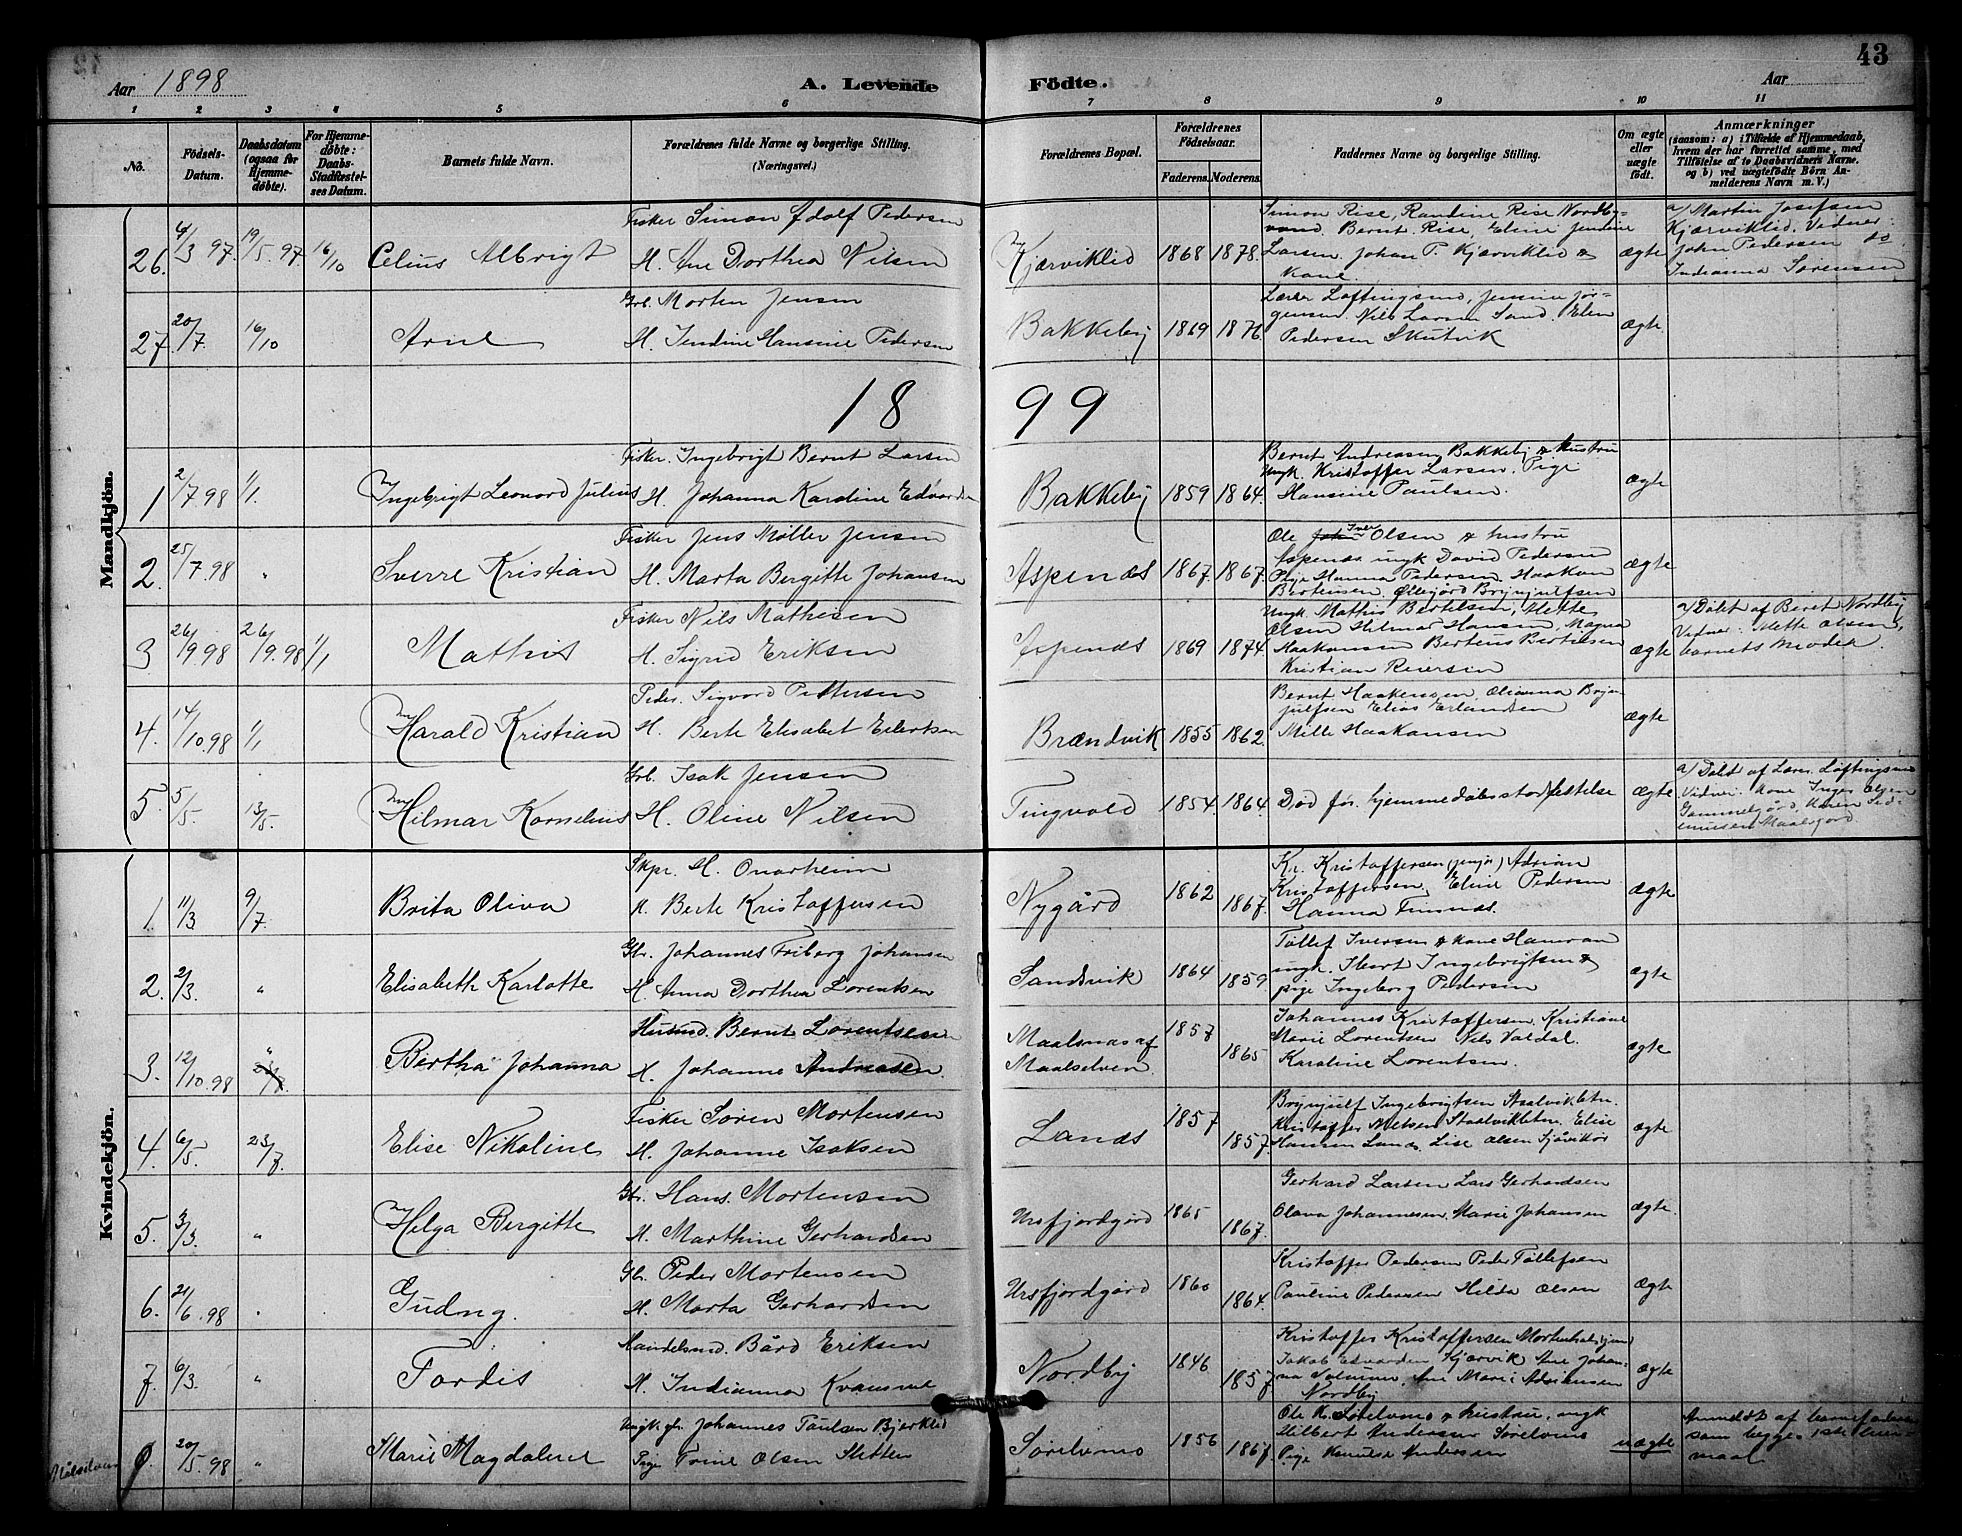 43
Aar 1898
A. Levende
Födte.
Aar
1 2 3 4 5 6 7 8 9 10 11
No.
Födsels-Datum.
Daabsdatum (ogsaa for Hjemmedöbte).
For Hjemmedöbte: Daabs-Stadfæstelses Datum.
Barnets fulde Navn.
Forældrenes fulde Navne og borgerlige Stilling. (Næringsvei.)
Forældrenes Bopæl.
Forældrenes Födselsaar.
Faderens. Moderens.
Faddernes Navne og borgerlige Stilling.
Om ægte eller uægte födt.
Anmærkninger
(saasom: a) i Tilfælde af Hjemmedaab, hvem der har forrettet samme, med Tilföielse af to Daabsvidners Navne. og b) ved uægtefödte Börn Anmelderens Navn m. V.)
Mandkjön.
26. 4/3 97. 19/5 97. 16/10 Celius Albrigt
Fisker Simon Adolf Pedersen
H. Ane Dorthea Nilsen
Kjærviklid 1868 1878.
Simon Rise, Randine Rise Nordby-
vand. Bernt Rise, Eline Jendine
Larsen. Johan P. Kjærviklid &
Kone.
ægte
a/ Martin Josefsen
Kjærviklid. Vidner:
John Pedersen do
Indianna Sørensen
27. 20/7. 16/10 Arne
Grb. Morten Jensen
H. Jendine Hansine Pedersen
Bakkeby 1869 1876.
Lærer Løftingsmo, Jensine Jør-
gensen. Nils Larsen Sand. Elen
Pedersen Skutvik
ægte.
1899
1 2/7 98 1/1. Ingebrigt Leonord Julius
Fisker. Ingebrigt Bernt Larsen
H. Johanna Kardine Edvardsen
Bakkeby 1859 1864.
Bernt Andreasen Bakkeby & hustru
Ungk. Kristoffer Larsen. Pige
Hansine Paulsen.
ægte
2. 25/7. 98 " Sverre Kristian
Fisker Jens Møller Jensen
H. Marta Bergitte Johansen
Aspenes 1867. 1867.
Ole Iver Olsen & hustru
Aspenes ungk David Pedersen
Pige Hanna Pedersen. Haakon
Berteusen, Øllegjørd Brynjulfsen
ægte
3 26/9.98 26/9.98 1/1 Mathis
Fisker Nils Mathesen
H. Sigrid Eriksen
Aspenes 1869 1874.
Ungk Mathis Bertelsen, Mette
Olsen Hilmar Hansen, Magna
Haakonsen Berteus Bertelsen
Kristian Reiersen
ægte
a/ Døbt af Beret Nordby
Vidner: Mette Olsen,
barnets Moder.
4. 14/10.98 1/1 Harald Kristian
Peder. Sigvard Pettersen
H. Berte Elisabet Eilertsen
Brændvik 1855 1862.
Bernt Haakensen, Olianna Bryn
julfsen Elias Erlandsen
Mille Haakonsen
ægte
5. 5/5. 13/5. Hilmar Kornelius
Grb. Isak Jensen
H. Oline Nilsen
Tingvold 1854. 1864.
Død før hjemmedøbsstadfæstelse
ægte
a/ Døbt af Lærer. Løftingsmo
Vidner: Kone Inger Olsen
Gammelgård, Karen
Maalsgord
Kvindekjön.
1. 11/3 9/7. Brita Oliva
Skpr. H. Onarheim
H. Berte Kristoffersen
Nygård 1862 1867.
Kr. Kristoffersen Adrian
Kristoffersen, Eline Pedersen
Hanna Finnes.
ægte
2. 2/3. " Elisabeth Karlotte
Gbr. Johannes Friberg Johansen
H. Anna Dorthea Lorentsen
Sandsvik 1864 1859.
Tollef Iversen & kone
ungk. Ingebrigtsen &
pige Ingeborg Pedersen
ægte
3. 12/10.98 " Bertha Johanna
Husmd. Bernt Lorentsen
H. Johanne Andreasen.
Maalsnes af
Maalselven. 1857 1865
Johannes Kristoffersen. Kristiane
Marie Lorentsen Nils Valdal.
Karoline Lorentsen.
ægte
4. 6/5. 23/7. Elise Nikoline
Fisker Søren Mortensen
H. Johanne Isaksen
Lands 1857 1857.
Brynjulf Ingebrigtsen
Kristoffer Nielsen Elise
Hansen Lands Lise Olsen
ægte
5. 3/3. " Helga Bergitte
Gbr. Hans. Mortensen
H. Marthine Gerhardsen
Ursfjordgård 1865 1867.
Gerhard Larsen Lars Gerhardsen
Olava Johannesen. Marie Johansen
ægte.
6. 21/6.98 " Gudny.
Gbr. Peder Mortensen
H. Marta Gerhardsen
Ursfjordgård 1860 1864.
Kristoffer Pedersen Peder Tollefsen
Pauline Pedersen Hilda Olsen
ægte
7. 6/3. " Tordis
Handelsmd. Bård Eriksen
H. Indianna
Nordby 1846 1857
Kristoffer Kristoffersen
Jakob Edvardsen Kjærvik Ane Johan-
na Ane Marie Adriansen
Nordby
ægte
Målselven 8. 20/5. 98 " Marie Magdalene
Ungk. Johannes Paulsen Bjerklid
Pige Trine Olsen Sletten
Sørelvmo 1856 1867.
Ole K. Sørelvmo & hustru, ungk
Hilbert Andersen Sørelvmo
Pige Andersen
uægte
Anmeldt af barnefaderen
som begges 1ste leier-
maal